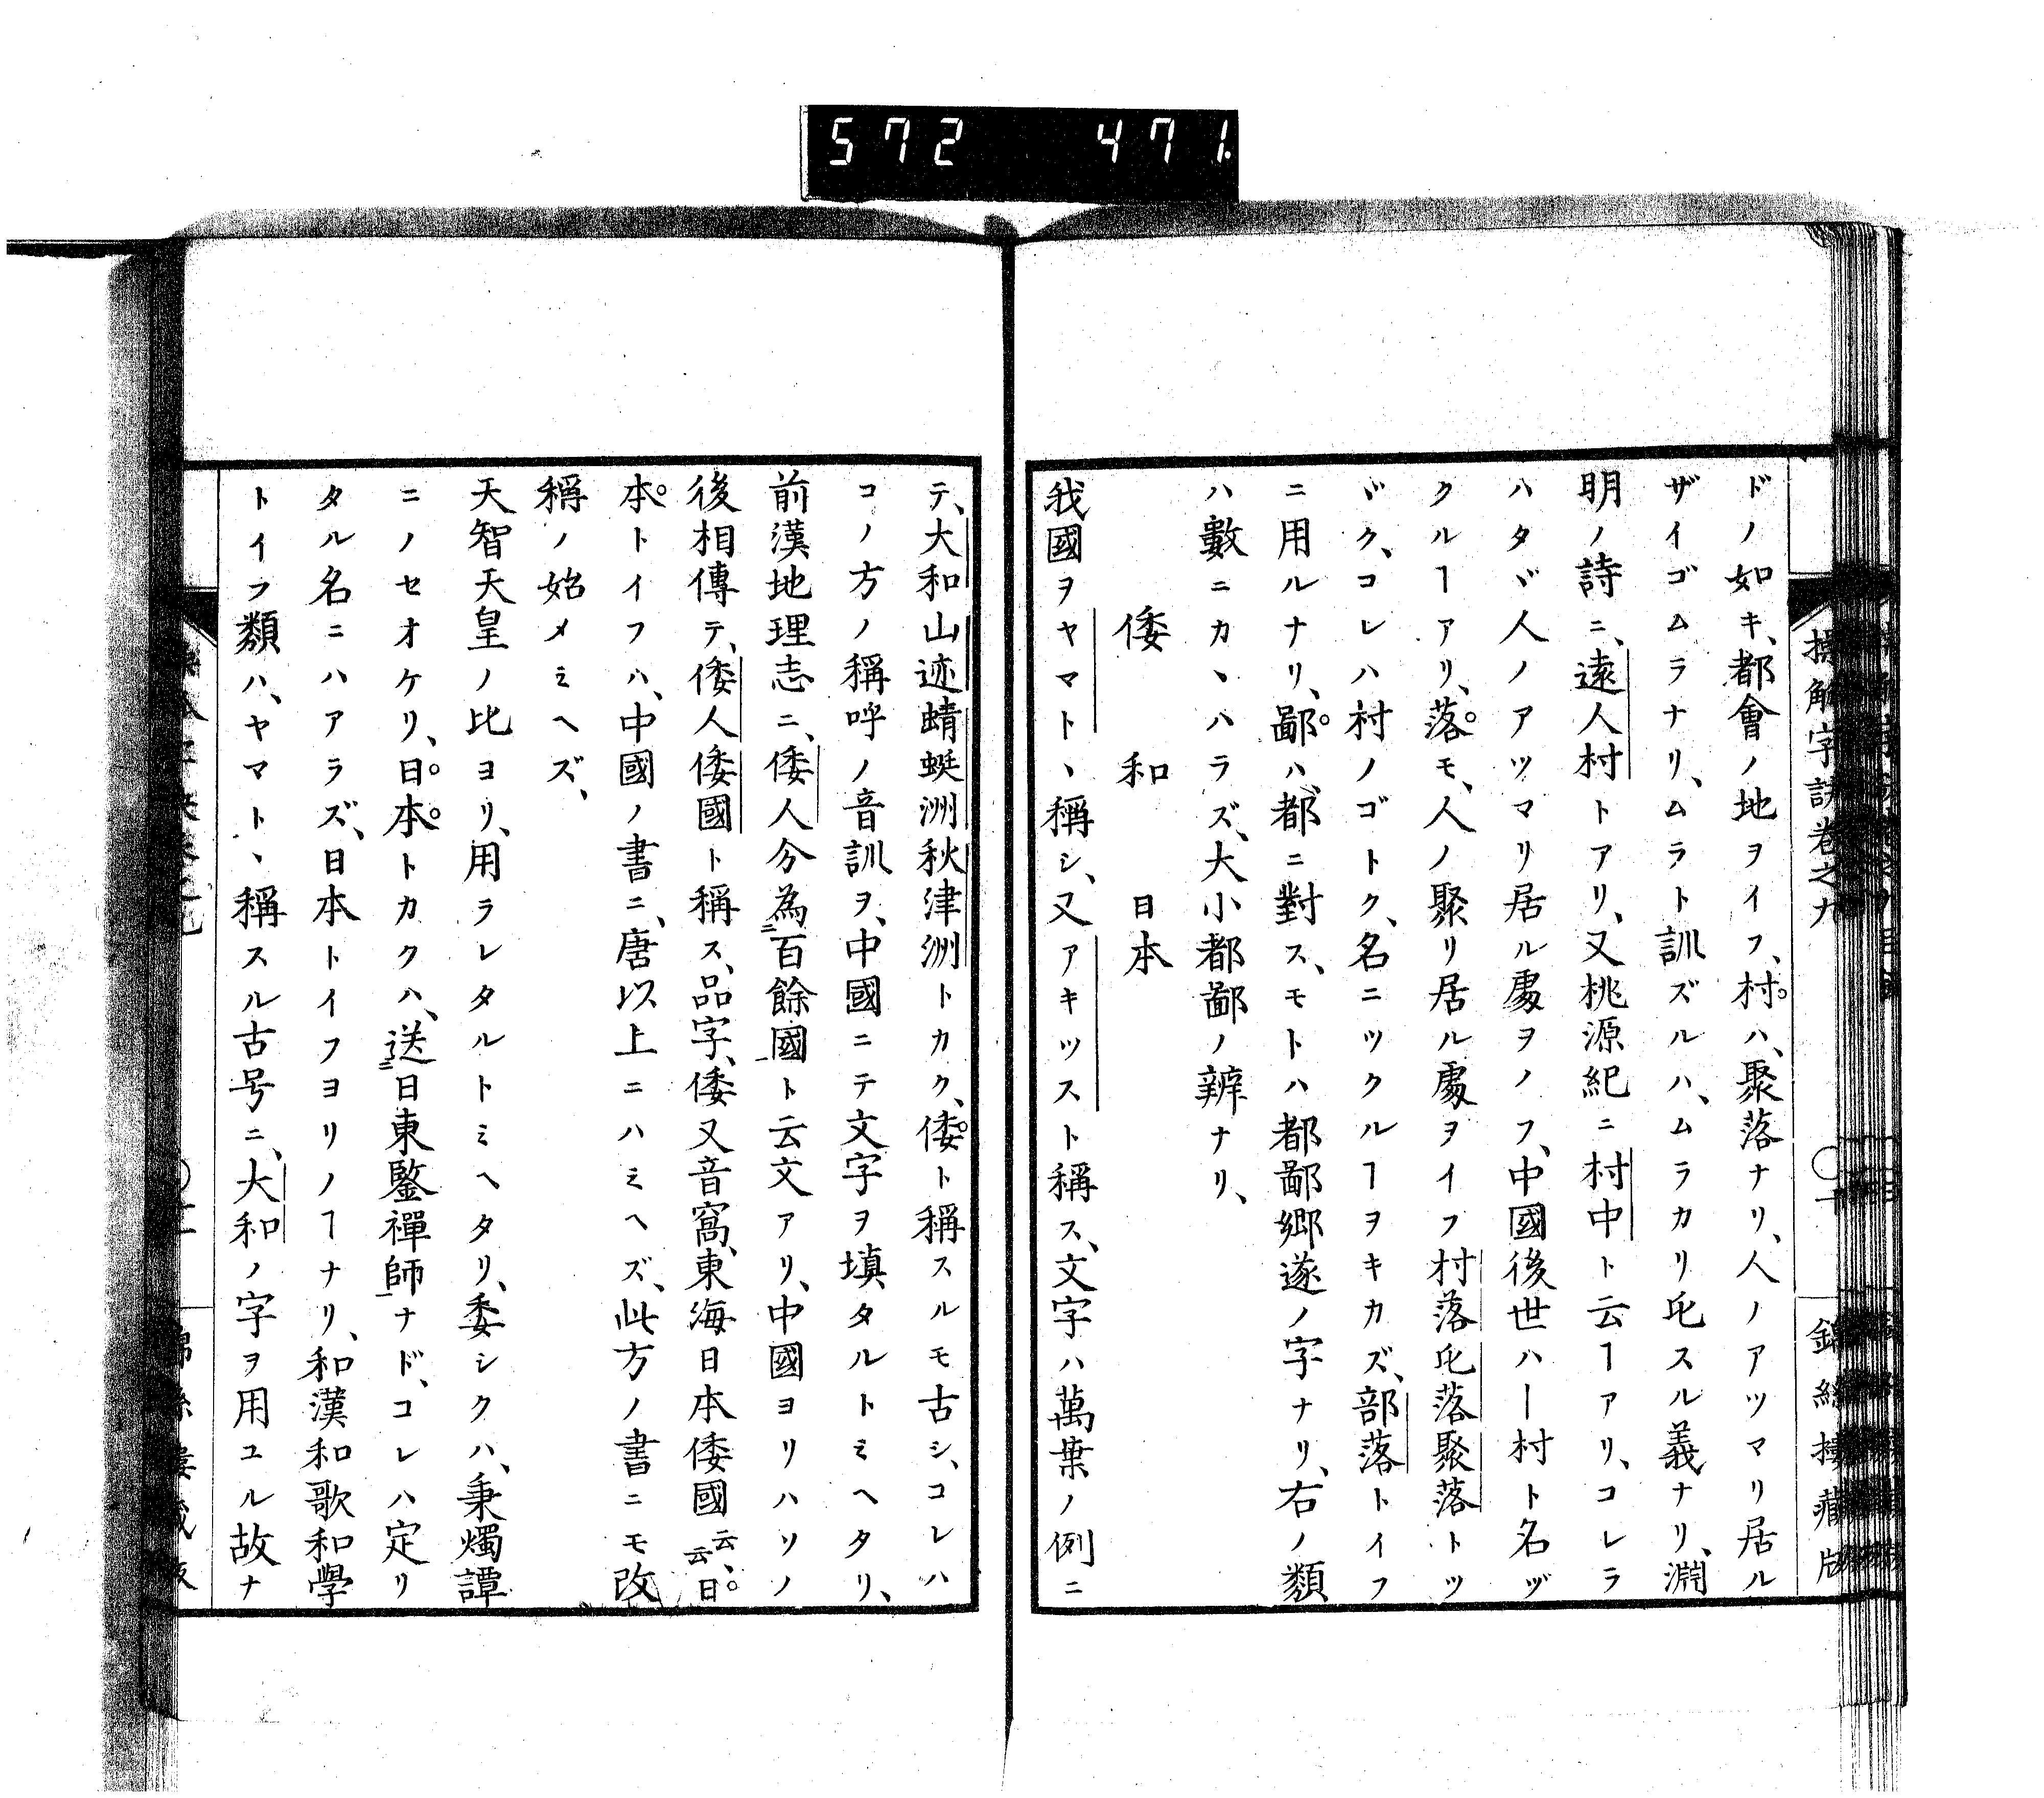 572 471.
ドノ如キ、都會ノ地ヲイフ、村ハ、聚落ナリ、人ノアツマリ居ル
ザイゴムラナリ、ムラト訓ズルハ、ムラカリ㐂スル義ナリ、淵
明ノ詩ニ、遠人村トアリ、又桃源紀ニ村中ト云ヿアリ、コレラ
ハタヾ人ノアツマリ居ル處ヲノフ、中國後世ハ一村ト名ヅ
クルヿアリ、落モ、人ノ聚リ居ル處ヲイフ村落屯落聚落トツ
ヾク、コレハ村ノゴトク、名ニツクルヿヲキカズ、部落トイフ
ニ用ルナリ、鄙ハ、都ニ對ス、モトハ都鄙郷遂ノ字ナリ、右ノ類
ハ數ニカヽハラズ、大小都鄙ノ辨ナリ、
倭 和 日本
我國ヲヤマトヽ稱シ、又アキツスト稱ス、文字ハ萬葉ノ例ニ
テ、大和山迹蜻蜓洲秋津洲トカク、倭ト稱スルモ古シ、コレハ
コノ方ノ稱呼ノ音訓ヲ、中國ニテ文字ヲ填タルトミヘタリ、
前漢地理志ニ、倭人分為二百餘國一ト云文アリ、中國ヨリハソノ
後相傳テ、倭人倭國ト稱ス、品字、倭又音窩、東海日本倭國云云、日
本トイフハ、中國ノ書ニ、唐以上ニハミヘズ、此方ノ書ニモ改
稱ノ始メミヘズ、
天智天皇ノ比ヨリ、用ラレタルトミヘタリ、委シクハ、秉燭譚
ニノセオケリ、日本トカクハ、送二日東鑒禪師一ナド、コレハ定リ
タル名ニハアラズ、日本トイフヨリノヿナリ、和漢和歌和學
トイフ類ハ、ヤマトヽ稱スル古号ニ、大和ノ字ヲ用ユル故ナ